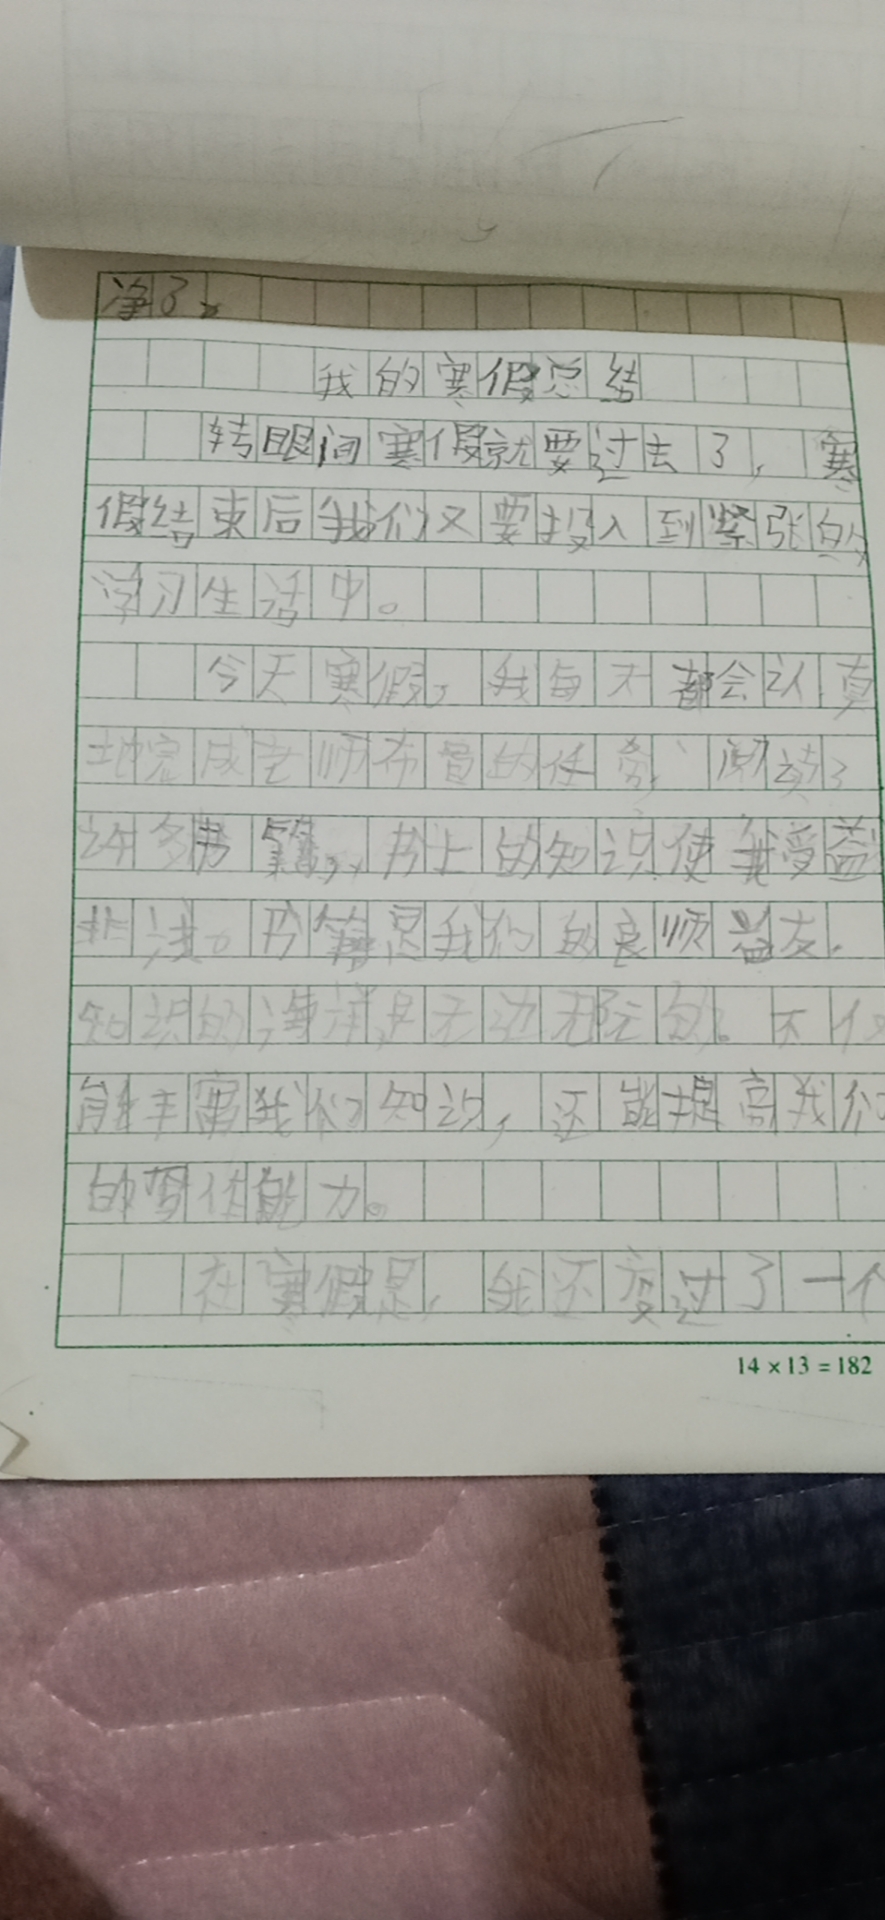 净了。
我的寒假总结
转眼间寒假就要过去了，寒
假结束后我们又要投入到紧张的
学习生活中。
今天寒假，我每天都会认真
地完成老师布置的任务，阅读了
许多书籍，书上的知识使我受益
非浅。书籍是我们的良师益友，
知识的海洋是无边无际的。不仅
能丰富我们知识，还能提高我们
的写作能力。
在寒假里，我还度过了一个
14×13=182